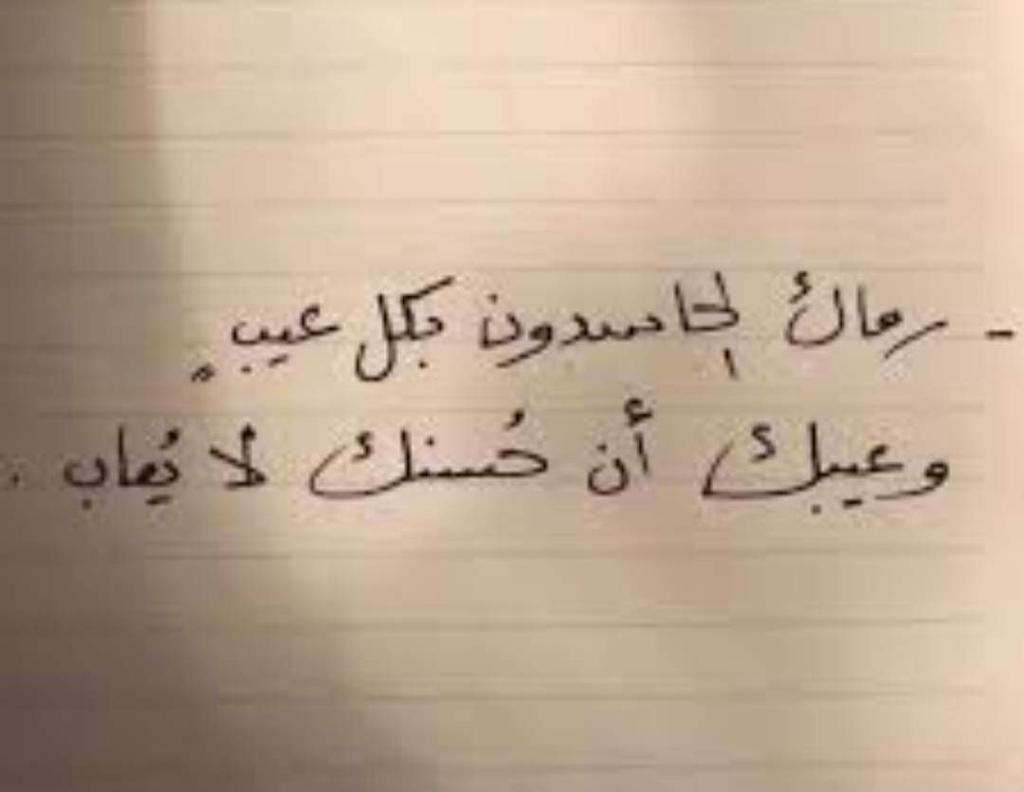 - رماك الحاسدون بكل عيبٍ
وعيبك أن حُسنك لا يُعاب .